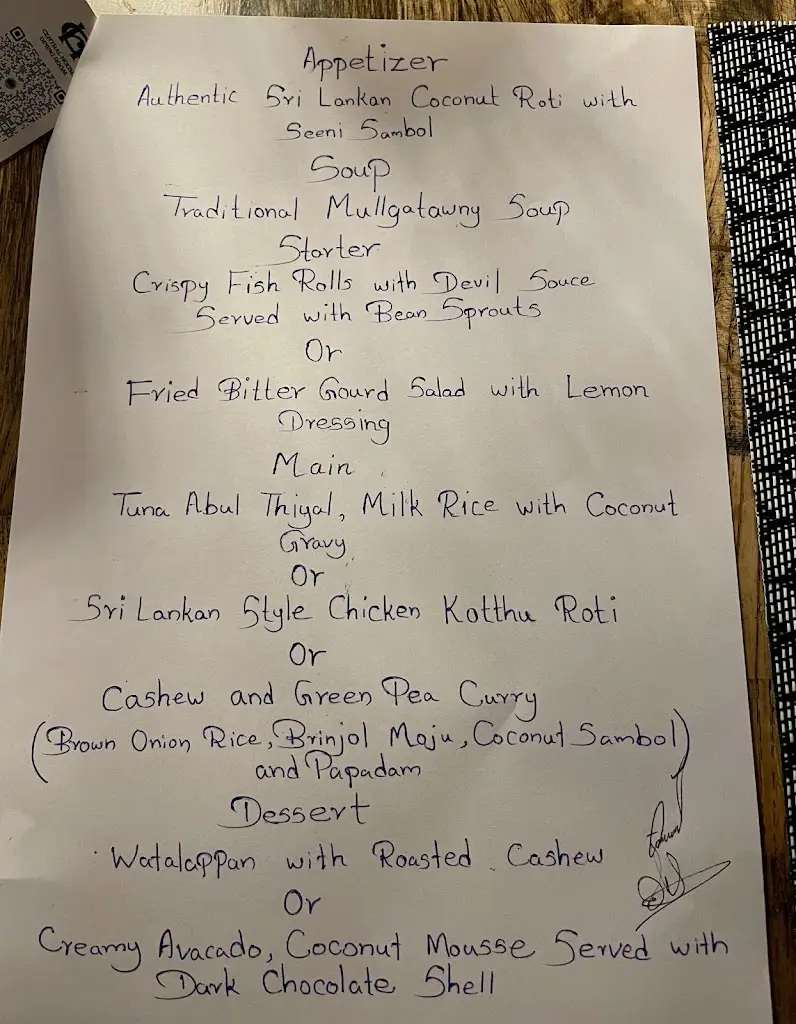 Appetizer
Authentic Sri Lankan Coconut Roti with
Seeni Sambol
Soup
Traditional Mullgatawny Soup
Starter
Crispy Fish Rolls with Devil Souce
Served with Bean Sprouts
Or
Fried Bitter Gourd Salad with Lemon
Dressing
Main
Tuna Abul Thiyal, Milk Rice with Coconut
Gravy
Or
Sri Lankan Style Chicken Kotthu Roti
Or
Cashew and Green Pea Curry
(Brown Onion Rice, Brinjol Moju, Coconut Sambol)
and Papadam
Dessert
Watalappan with Roasted Cashew
Or
Creamy Avacado, Coconut Mousse Served with
Dark Chocolate Shell